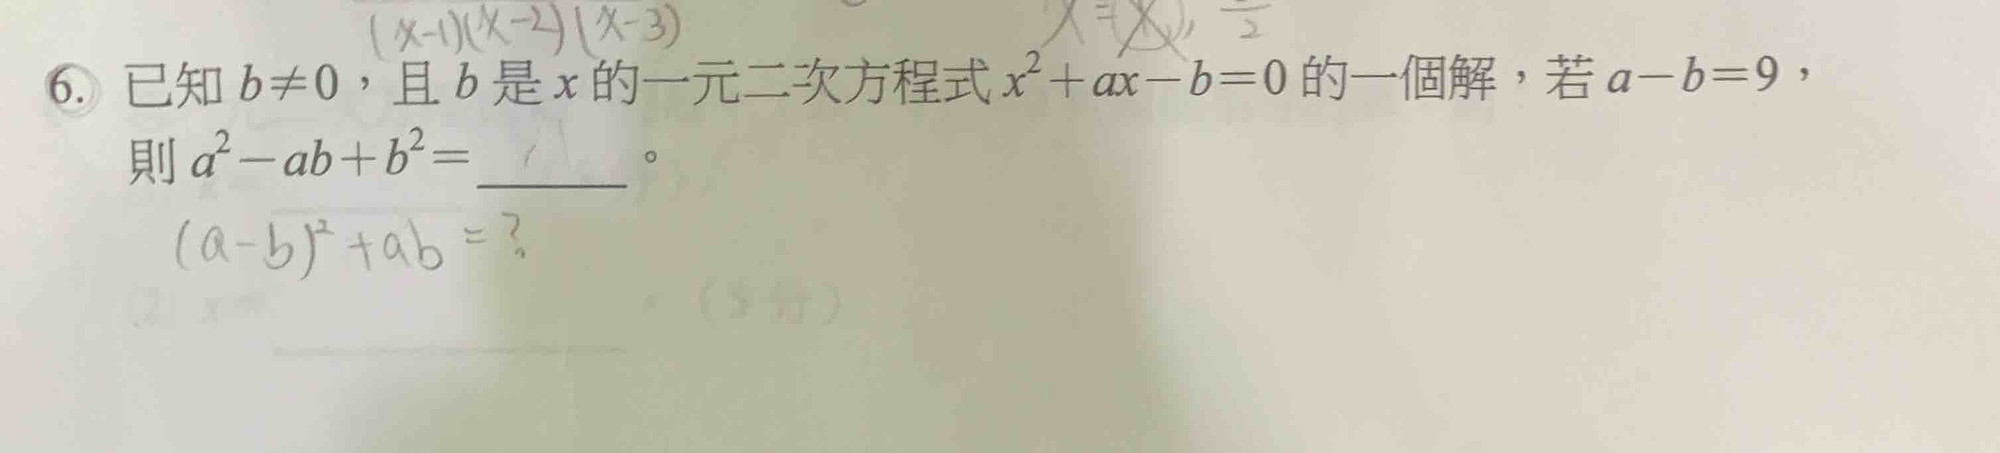 (x-1)(x-2)(x-3)
6. 已知 b≠0，且 b 是 x 的一元二次方程式 x²+ax-b=0 的一個解，若 a-b=9，
則 a²-ab+b²=______。
(a-b)²+ab=?
(5分)